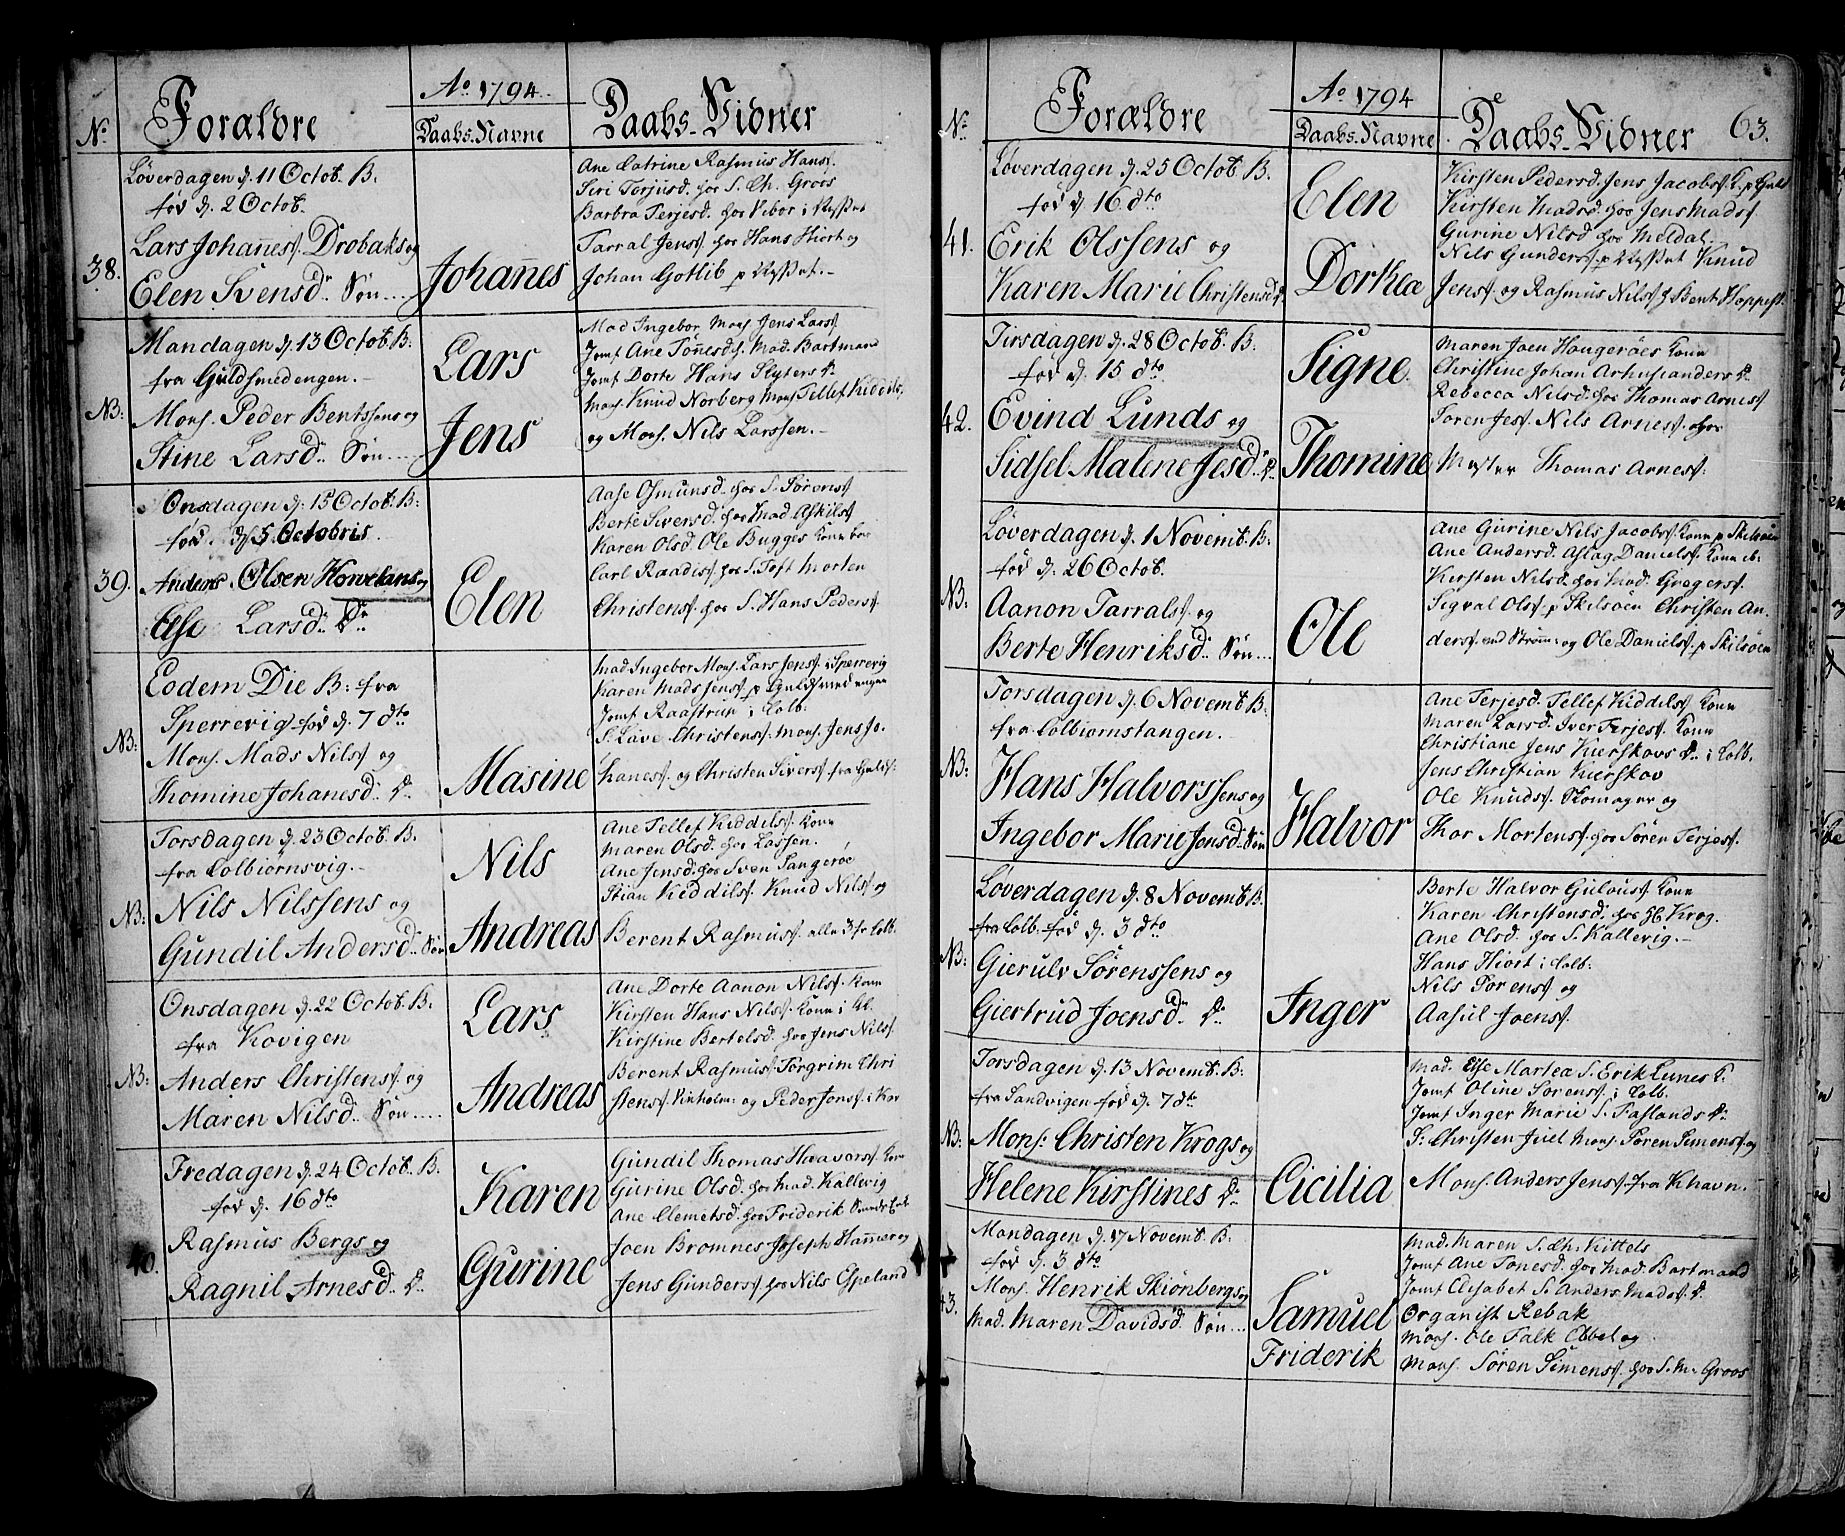 No Forældre
Ao 1794
Daabs-Navne
Daabs-Vidner
Løverdagen d. 11 Octob. B.
fød d. 2 Octob.
38. Lars Johanesf. Drobaks og
Elen Svensd. Søn
Johañes
Ane Catrine Rasmus Hansf.
Siri Torjusd. hos S. Ch. Groos
Barbra Terjesd. hos Vibor i
Tarral Jensf. hos Hans Hiort og
Johan Gotlib p
Mandagen d. 13 Octob. B.
fra Guldsmedengen.
NB: Mons. Peder Bentssens og
Stine Larsd. Søn
Lars
Jens
Mad Ingebor Mons. Jens Larsf.
Jomf Ane Tõnesd. h. Mad. Bartmand
Jomf Dorte Hans Slyters D.
Mons. Knud Norberg Mons. Tellef Kiddils.
og Mons. Nils Larssen.
Onsdagen d. 15 Octob. B:
fød d. 5 Octobris
39. Anders Olsen Horvelans og
Else Larsd. Dr
Elen
Aase Osmunsd. hos S. Sørensf
Berte Sivensd. hos Mad Askilsf
Karen Olsd. Ole Bugges Kone
Carl Raadisf. hos S. Toft Morten
Christensf. hos S. Hans Pedersf.
Eodem Die B: fra
Sperrevig fød d. 7 dto
NB: Mons. Mads Nilsf og
Thomine Johanesd. D.
Masine
Mad Ingebor Mons. Lars Jensf. i Sperrevig
Karen Mads Jensf. p Guldsmedengen
Jomf Raastrup i Colb.
S. Lave Christensf. Mons. Jens Jo.
hanesf. og Christen Siversf fra Guldf.
Torsdagen d. 23 Octob. B.
fra Colbiornsvig.
NB: Nils Nilssens og
Gundil Andersd. Søn
Nils
Andreas
Ane Tellef Kiddilsf. Kone
Maren Olsd. hos Lassen.
Ane Jensd. hos Sven Tangerøe
Stian Kiddilsf. Knud Nilsf og
Berent Rasmusf. alle 3 fr Colb.
Onsdagen d. 22 Octob. B.
fra Kovigen
NB: Anders Christensf. og
Maren Nilsd. Søn
Lars
Andreas
Ane Dorte Aanon Nilsf. Kone
Kirsten Hans Nilsf. Kone i
Kirstine Bertelsd. hos Jens Nilsf.
Berent Rasmusf. Torgrim Chri
stensf. og Peder Jensf. i Kov
Fredagen d. 24 Octob. B.
fød d. 16 dto
40. Rasmus Bergs og
Ragnil Arnesd. D.
Karen
Gurine
Gundil Thomas Haavorsf. Kone
Gurine Olsd. hos Mad. Kallevig
Ane Clemetsd. hos Friderik
Joen Bromnes Joseph Hamer og
Jens Gundersf. hos Nils Espeland
No Forældre
Ao 1794
Daabs-Navne
Daabs-Vidner 63.
Løverdagen d. 25 Octob. B.
fød d 16 dto
41. Erik Olssens og
Karen Marie Christensd. D.
Elen
Dorthea
Kirsten Pedersd. Jens Jacobsf. K. p Guld
Kirsten Madsd. hos Jens Madsf
Gurine Nilsd hos Meldal
Nils Gundersf. p Knud
Jensf. og Rasmus Nilsf h Bent Hoppest.
Tirsdagen d. 28 Octob. B.
fød d. 15 dto
42. Evind Lunds og
Sidsel Malene Jesd. D.
Signe
Thomine
Maren Joen Haugerøes Kone
Christine Johan Arhusianders D.
Rebecca Nilsd. hos Thomas Arnesf
Søren Jesf. Nils Arnesf. og
Mester Thomas Arnesf.
Løverdagen d. 1 Novemb. B:
fød d. 26 Octob.
NB. Aanon Tarralsf og
Berte Henriksd. Søn
Ole
Ane Gurine Nils Jacobsf. Kone p Skilsøen
Ane Andersd. Aslag Danielsf. Kone
Kirsten Nilsd hos Mad. Gregersf.
Sigval Olsf p Skilsøen Christen An.
dersf. ved Strøm: og Ole Danielsf. p Skilsøen
Torsdagen d. 6 Novemb. B:
fra Colbiornstangen.
NB: Hans Halvorssens og
Ingebor Marie Jensd. Søn
Halvor
Ane Terjesd. Tellef Kiddilsf Kone
Maren Larsd. Iver Terjesf. Kone
Christiane Jens Kierskovs D. i Colb.
Jens Christian Kierskov
Ole Knudsf. Skomager og
Thor Mortensf. hos Søren Terjesf.
Løverdagen d. 8 Novemb. B.
fra Colb. fød d. 3 dto
NB: Gierulv Sørenssens og
Giertrud Joensd. D.
Inger
Berte Halvor Gulousf. Kone
Karen Christensd. hos Krog.
Ane Olsd. hos S. Kallevig.
Hans Hiort i Colb.
Nils Sørensf og
Aasul Joensf.
Torsdagen d. 13 Novemb. B.
fra Sandvigen fød d. 7 dto
NB: Mons: Christen Krogs og
Helene Kirstines D.
Cicilia
Mad. Else Martea S. Erik Lunes K.
Jomf Oline Sørensf. i Colb.
Jomf Inger Marie S. Faslands D.
S: Christen Juel Mons. Søren Simensf og
Mons. Anders Jensf. fra Khavn.
Mandagen d. 17 Novemb. B.
fød d. 3 dto
43. Mons. Henrik Skiönbergs og
Mad. Maren Davidsd. Søn
Samuel
Friderik
Mad. Maren S. Ch. Kittels
Jomf Ane Tonesd. hos Mad. Bartmand
Jomf Elisabet S. Anders Madsf. D.
Organist Rebak
Mons. Ole Falk Ebbel og
Mons. Søren Simensf. hos S. M. Groos